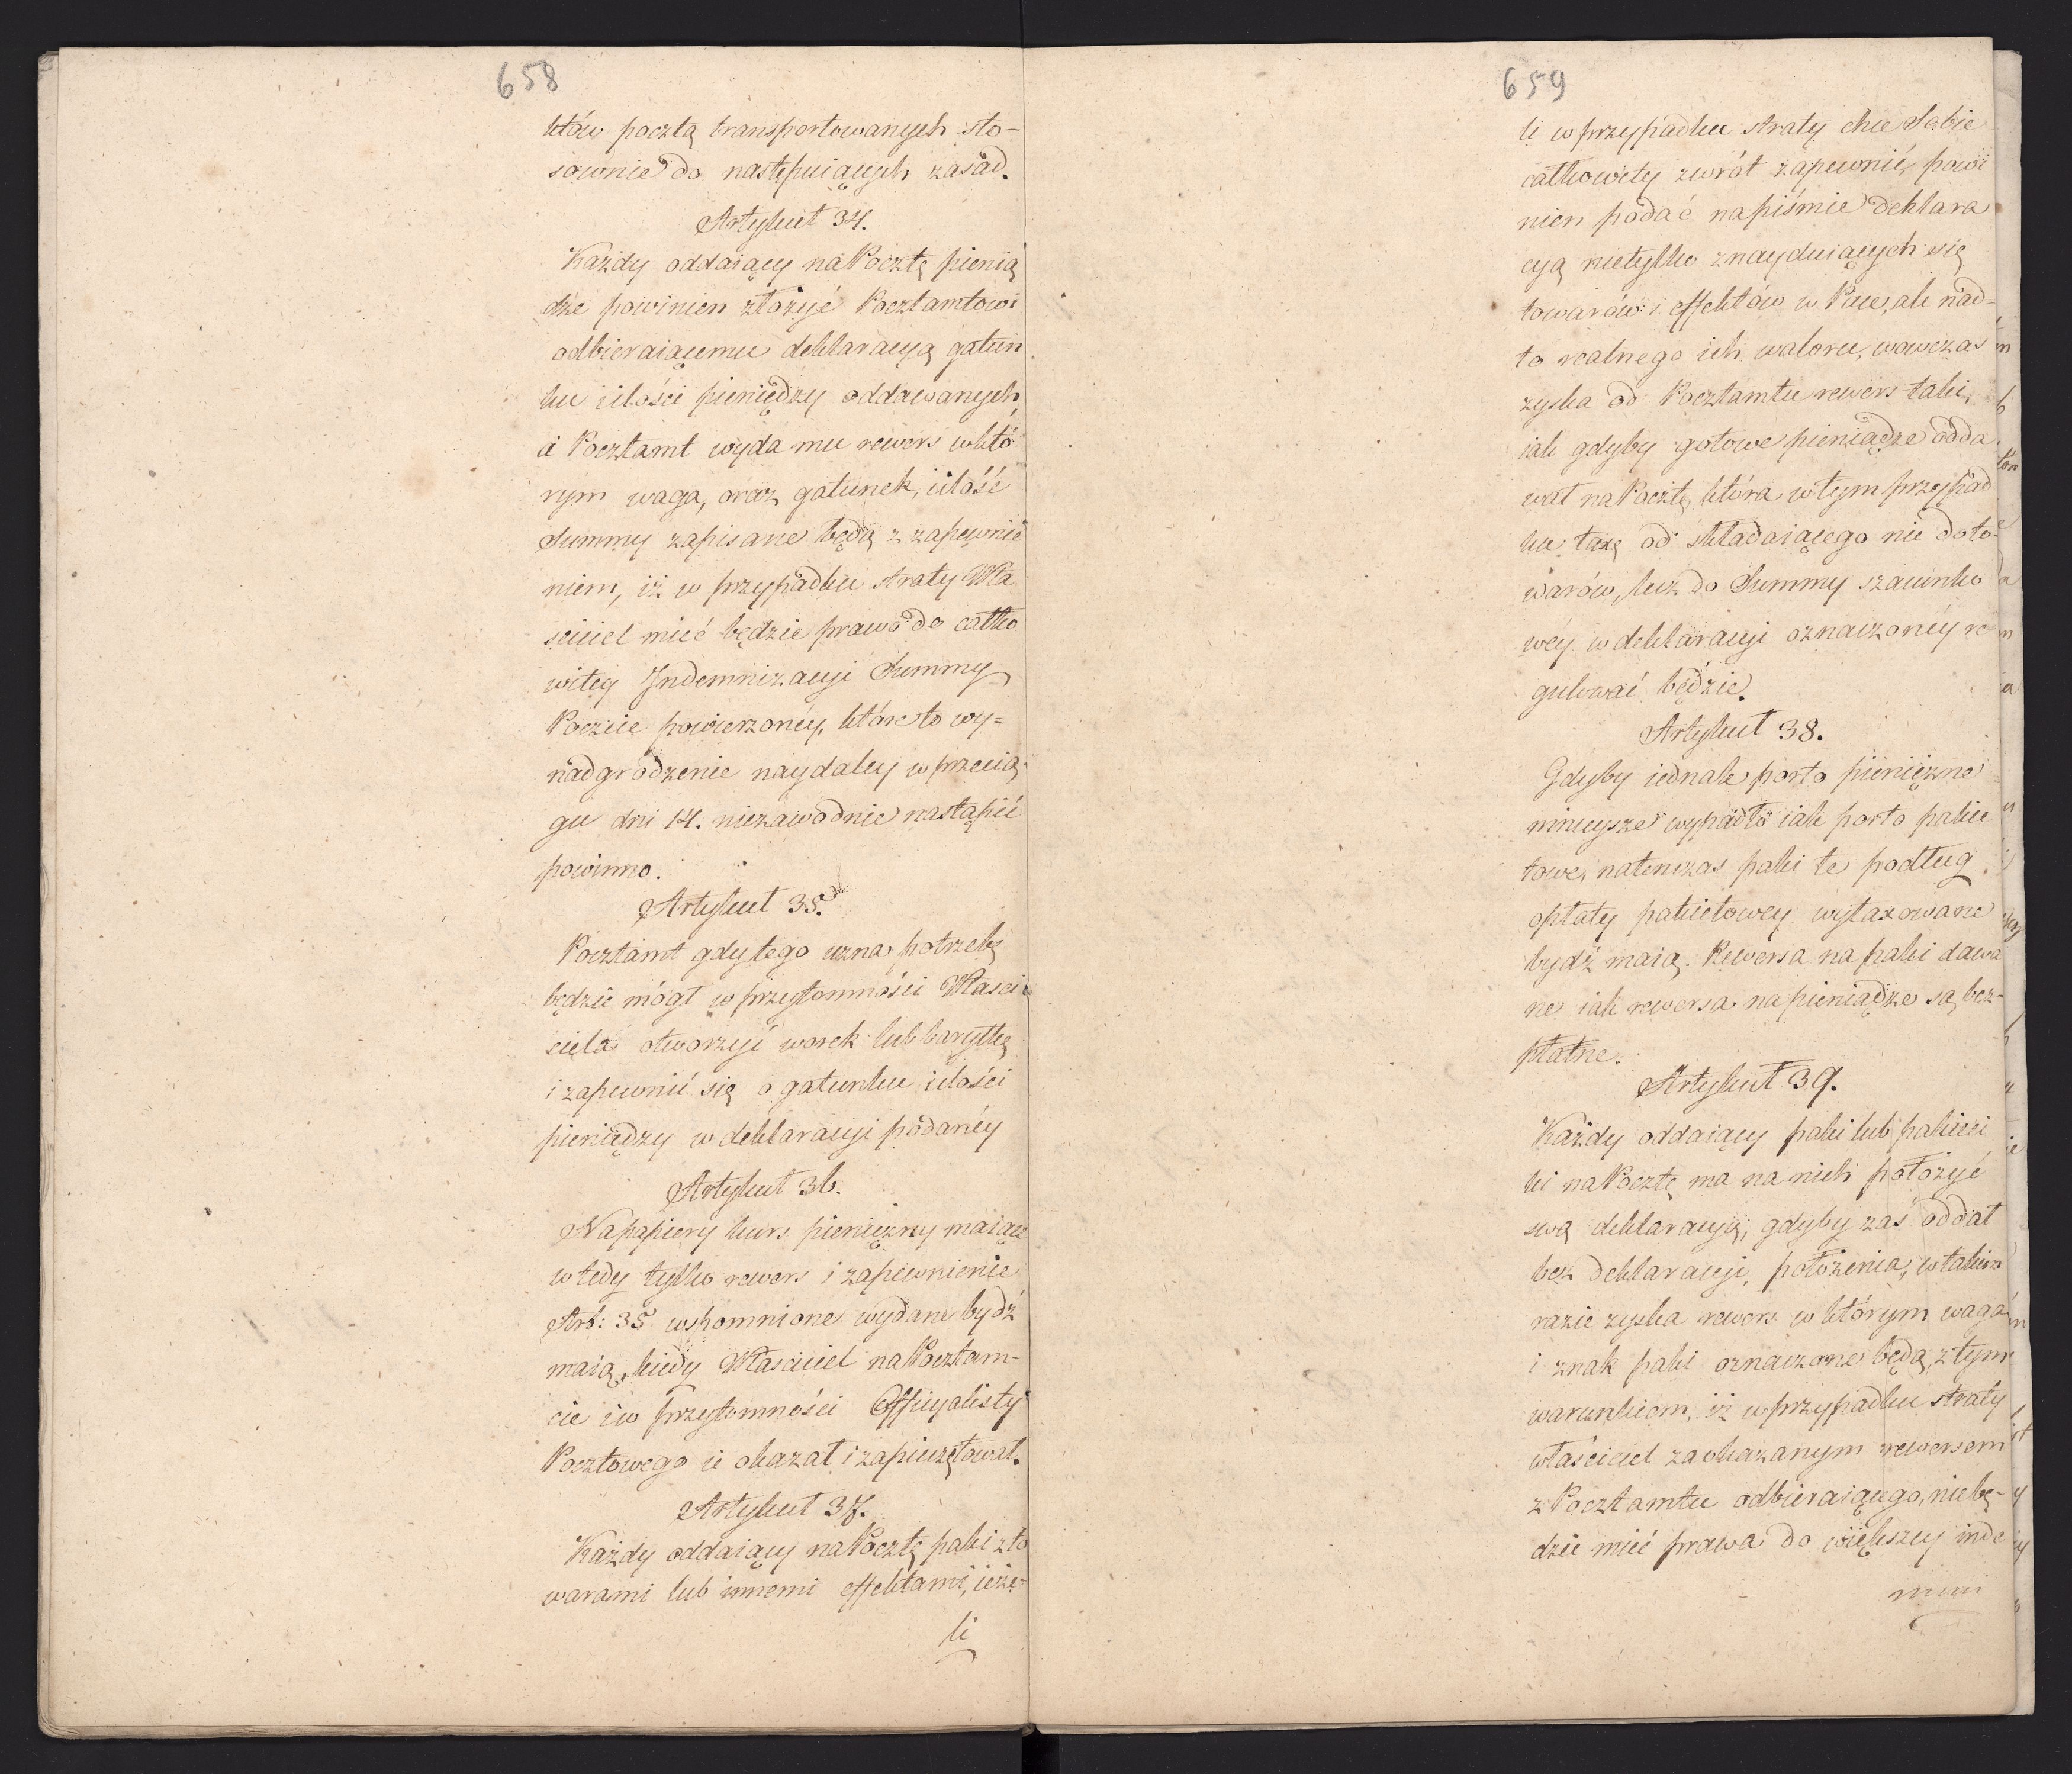 658
któw pocztą transportowanych sto-
sownie do następuiących zasad.
Artykuł 34.
Każdy oddaiący na Pocztę pienią
dze powinien złożyć Pocztamtowi
odbieraiącemu deklaracyą gatun
ku i ilości pieniędzy oddawanych,
a Pocztamt wyda mu rewers w któ
rym waga, oraz gatunek, i ilość
Summy zapisane będą z zapewnie
niem, iż w przypadku straty Wła
sciciel mieć będzie prawo do całko
witey Indemnizacyi Summy
Poczcie powierzonéy, które to wy=
nadgrodzenie naydaley w przecią
gu dni 14. niezawodnie nastąpić
powinno.
Artykuł 35.
Pocztamt gdy tego uzna potrzebę
będzie mógł w przytomności Własci
ciela otworzyć worek lub baryłkę
i zapewnić się o gatunku i ilości
pieniędzy w deklaracyi podanéy
Artykuł 36.
Na papiery kurs pieniężny maiące
wtedy tylko rewers i zapewnienie
Art: 35 wspomnione wydane bydź
maią, kiedy Własciciel na Pocztam-
cie i w przytomności Officyalisty
Pocztowego ie okazał i zapieczętował.
Artykuł 37.
Każdy oddaiący na Pocztę paki z to
warami lub innemi effektami, ieże-
li
659
li w przypadku straty chce Sobie
całkowity zwrót zapewnić, powi
nien podać na piśmie deklara
cyą nietylko znayduiących się
towarów i effektów w Pace, ale nad=
to realnego ich waloru, wowczas
zyska od Pocztamtu rewers taki,
iak gdyby gotowe pieniądze odda
wał na Pocztę, która w tym przypad
ku taxę od składaiącego nie do to-
warów, lecz do Summy szacunko
wéy w deklaracyi oznaczonéy re
gulować będzie.
Artykuł 38.
Gdyby iednak porto pieniężne
mnieysze wypadło iak porto pakie
towe, natenczas paki te podług
opłaty pakietowey wytaxowane
bydź maią. Rewersa na paki dawa
ne iak rewersa na pieniądze są bez-
płatne.
Artykuł 39.
Każdy oddaiący paki lub pakiecі
ki na Pocztę ma na nich położyć
swą deklaracyę, gdyby zaś oddał
bez deklaracyi, położenia, w takim
razie zyska rewers w którym waga
i znak paki oznaczone będą, z tym
warunkiem, iż w przypadku straty
właściciel za okazanym rewersem
z Pocztamtu odbieraiącego, nie bę-
dzie mieć prawa do większey inde
mni